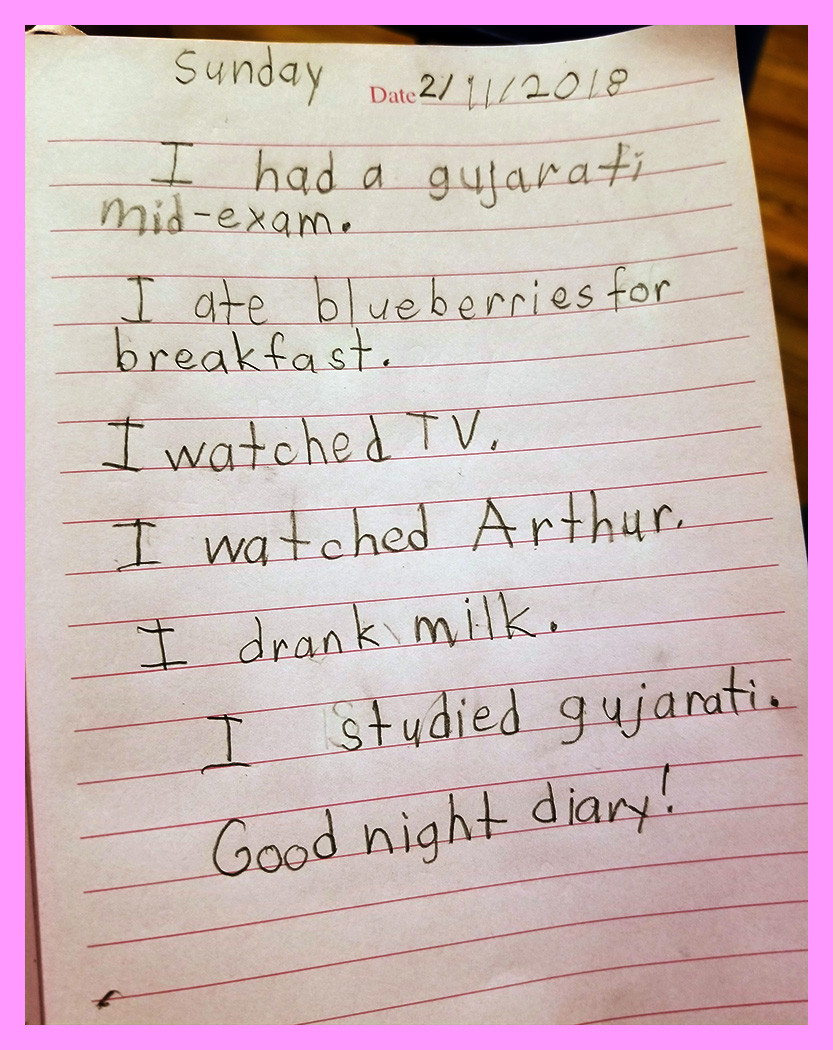 Sunday
Date 2/11/2018
I had a gujarati
mid-exam.
I ate blueberries for
breakfast.
I watched TV.
I watched Arthur.
I drank milk.
I studied gujarati.
Good night diary!